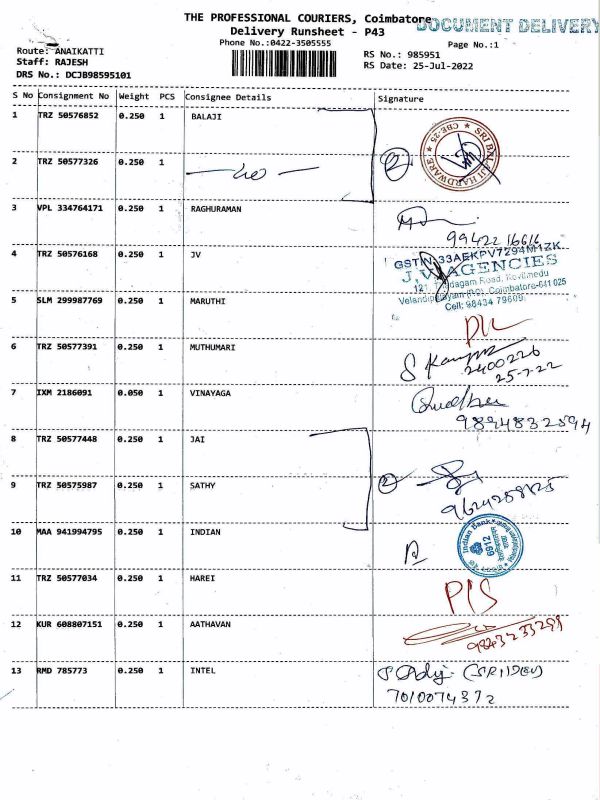 THE PROFESSIONAL COURIERS, Coimbatore
DOCUMENT DELIVERY
Delivery Runsheet - P43
Phone No.:0422-3505555
Page No.:1
Route: ANAIKATTI
RS No.: 985951
Staff: RAJESH
RS Date: 25-Jul-2022
DRS No.: DCJB98595101
S No Consignment No Weight PCS Consignee Details Signature
1 TRZ 50576852 0.250 1 BALAJI
SRI BALAJI HARDWARE ★ CBE-25 ★
2 TRZ 50577326 0.250 1
2
3 VPL 334764171 0.250 1 RAGHURAMAN
99422 16616
4 TRZ 50576168 0.250 1 JV
GSTIN 33AEKPV7294M1ZK
J.V. AGENCIES
121, Thadagam Road, Kovilmedu
Velandipalayam (PO), Coimbatore-641 025
Cell: 98434 79609
5 SLM 299987769 0.250 1 MARUTHI
6 TRZ 50577391 0.250 1 MUTHUMARI
2400226
25-7-22
7 IXM 2186091 0.050 1 VINAYAGA
9894832594
8 TRZ 50577448 0.250 1 JAI
9 TRZ 50575987 0.250 1 SATHY
2
10 MAA 941994795 0.250 1 INDIAN
Indian Bank
11 TRZ 50577034 0.250 1 HAREI
12 KUR 608807151 0.250 1 AATHAVAN
9843233299
13 RMD 785773 0.250 1 INTEL
(SRIDEVI)
7010074372